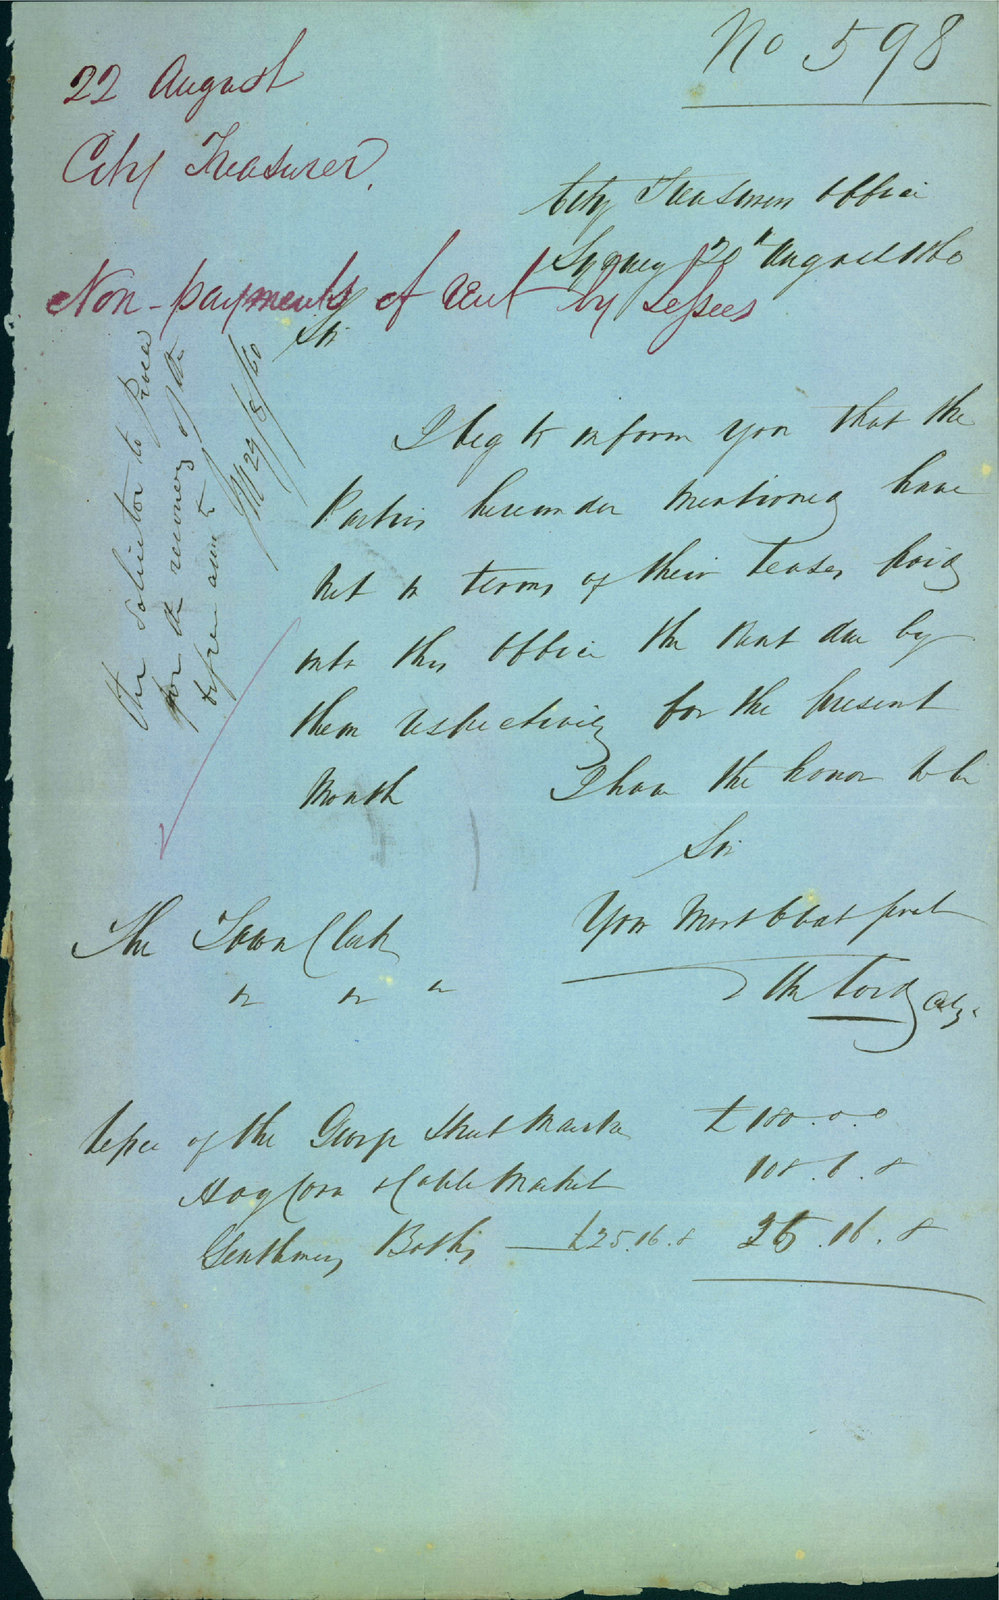 No 598
22 August
City Treasurer
City Treasurers Office
Sydney 20th August 1860
Non-payments of Rent by Lessees
Sir
I beg to inform you that the
Parties hereunder mentioned have
not in terms of their Leases paid
into this office the Rent due by
them respectively for the present
Month I have the honor to be
Sir
Your Most Obdt Servt
The Town Clerk
City
The solicitor to proceed
for the recovery of the
29/8/60
Lessee of the George Street Market £180.0.0
Hay Corn & Cattle Market 108.6.8
Gentlemens Baths £25.16.8 25.16.8